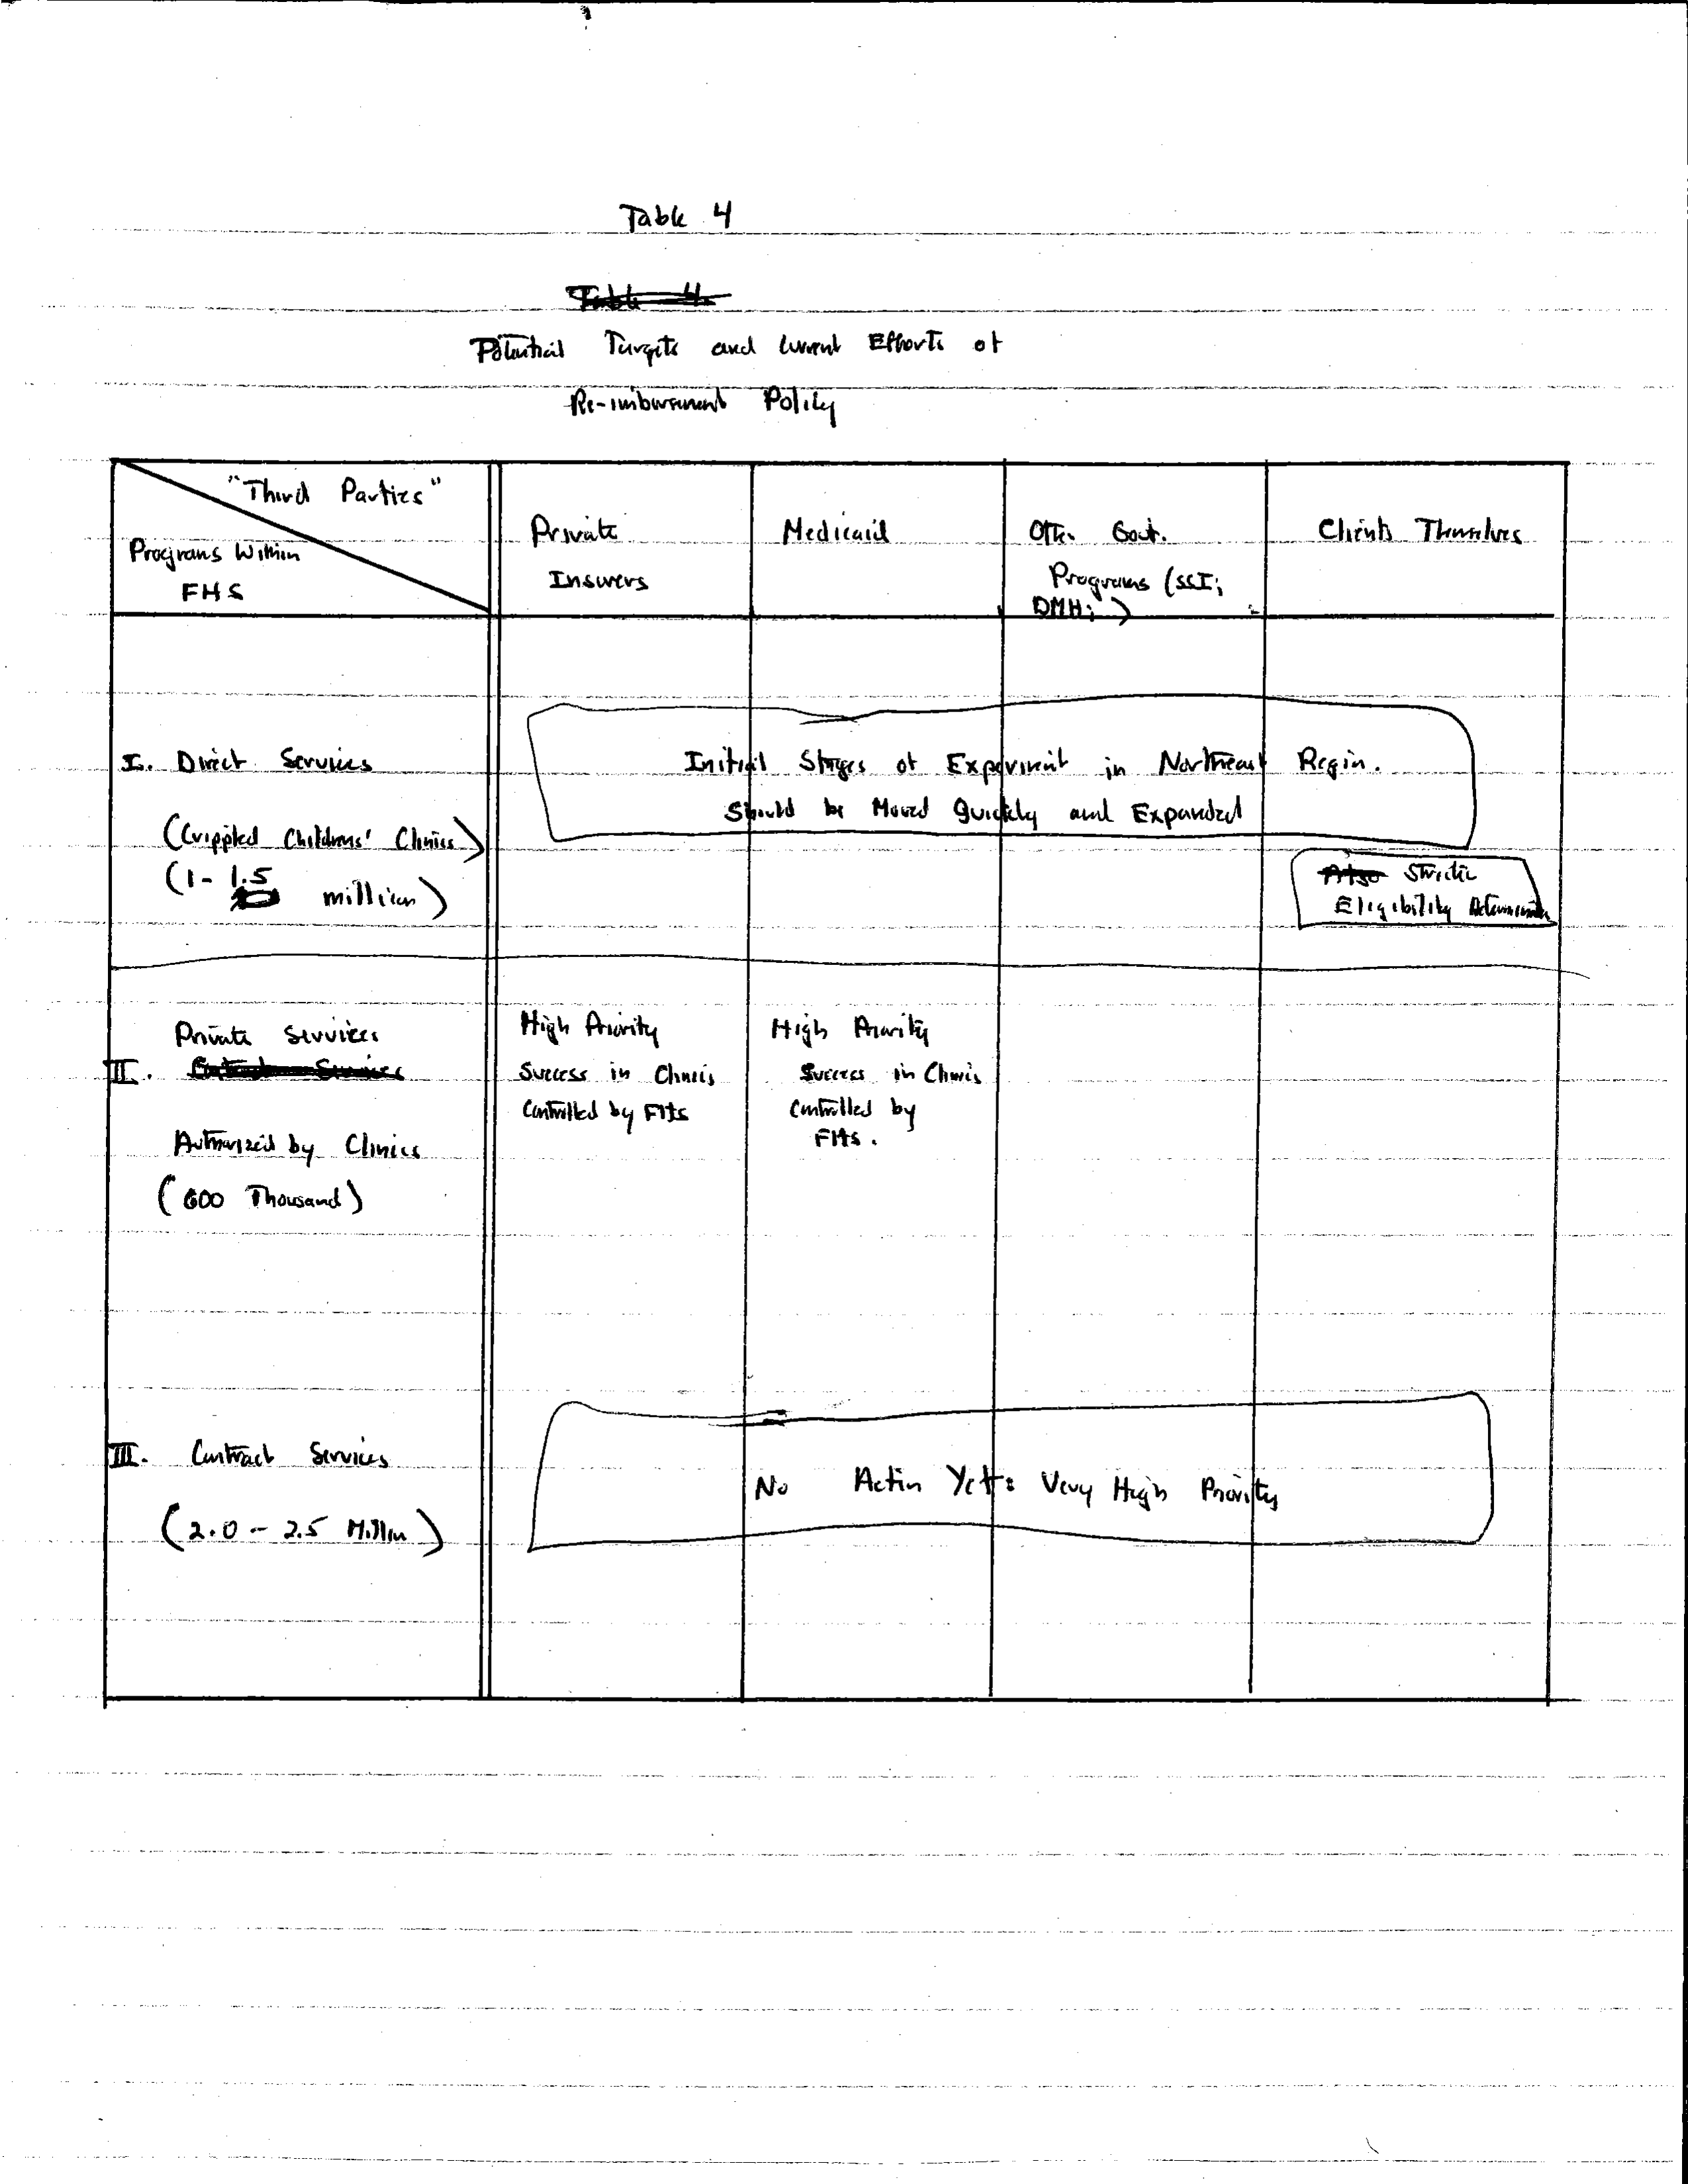 Table 4
Table 4
Potential Targets and Current Efforts of
Re-imbursement Policy
"Third Parties"
Programs Within
FHS
Private
Insurers
Medicaid
Other Govt.
Programs (SSI;
DMH; )
Clients Themselves
I. Direct Services
(Crippled Childrens' Clinics)
(1- 1.5 million)
Initial Stages of Experiment in Northeast Region.
Should be Moved Quickly and Expanded
Also Stricter
Eligibility Determination
Private Services
II.
Authorized by Clinics
(600 Thousand)
High Priority
Success in Clinics
Controlled by FHS
High Priority
Success in Clinics
Controlled by
FHS.
III. Contract Services
(2.0 - 2.5 Million)
No Action Yet: Very High Priority